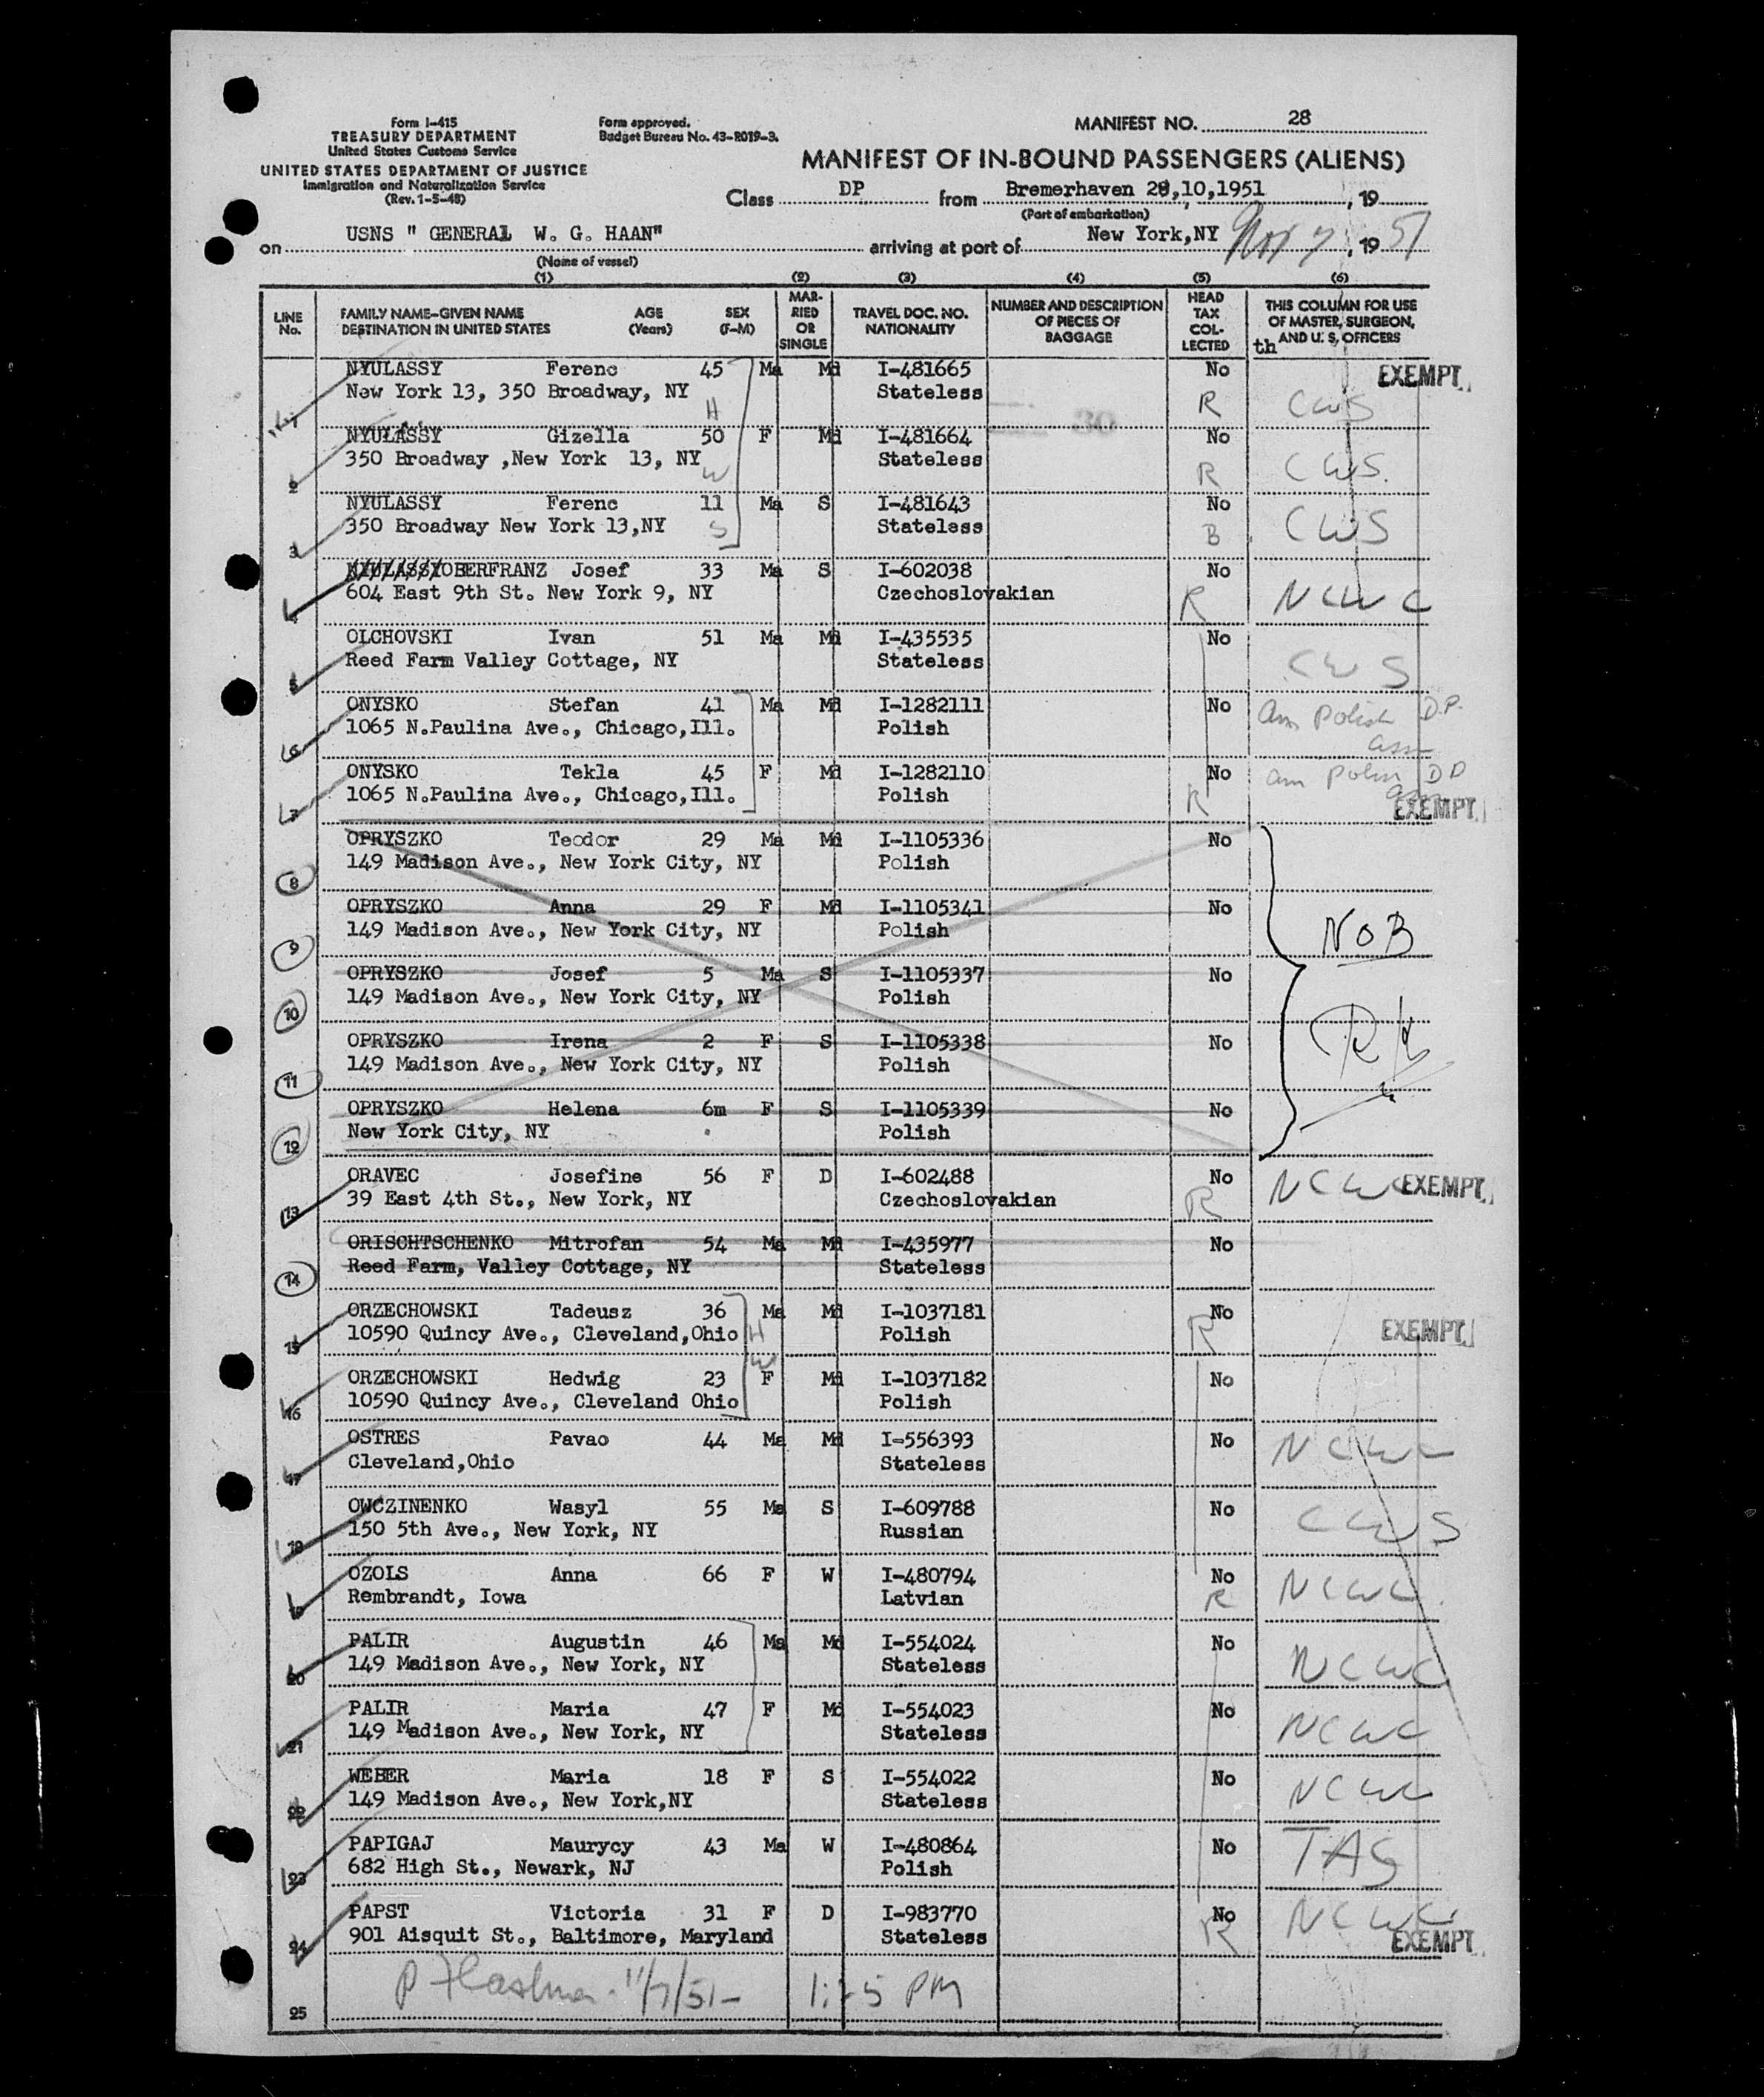 Form I-415
TREASURY DEPARTMENT
United States Customs Service
UNITED STATES DEPARTMENT OF JUSTICE
Immigration and Naturalization Service
(Rev. 1-5-48)
Form approved.
Budget Bureau No. 43-R019-3.
MANIFEST NO. 28
MANIFEST OF IN-BOUND PASSENGERS (ALIENS)
Class DP from Bremerhaven 28,10,1951, 19
(Port of embarkation)
on USNS " GENERAL W. G. HAAN" arriving at port of New York,NY Nov 7, 1951
(Name of vessel)
(1) (2) (3) (4) (5) (6)
LINE No. FAMILY NAME-GIVEN NAME DESTINATION IN UNITED STATES AGE (Years) SEX (F-M) MARRIED OR SINGLE TRAVEL DOC. NO. NATIONALITY NUMBER AND DESCRIPTION OF PIECES OF BAGGAGE HEAD TAX COLLECTED THIS COLUMN FOR USE OF MASTER, SURGEON, AND U. S. OFFICERS
th
NYULASSY Ferenc 45 Ma Md I-481665 No EXEMPT
1 New York 13, 350 Broadway, NY H Stateless R CWS
NYULASSY Gizella 50 F Md I-481664 30 No
2 350 Broadway ,New York 13, NY W Stateless R CWS.
NYULASSY Ferenc 11 Ma S I-481643 No
3 350 Broadway New York 13,NY S Stateless B CWS
NYULASSY OBERFRANZ Josef 33 Ma S I-602038 No
4 604 East 9th St. New York 9, NY Czechoslovakian R NCWC
OLCHOVSKI Ivan 51 Ma Md I-435535 No
5 Reed Farm Valley Cottage, NY Stateless CWS
ONYSKO Stefan 41 Ma Md I-1282111 No Am Polish D.P.
6 1065 N.Paulina Ave., Chicago,Ill. Polish assn
ONYSKO Tekla 45 F Md I-1282110 No am Polish DP
7 1065 N.Paulina Ave., Chicago,Ill. Polish R EXEMPT
OPRYSZKO Teodor 29 Ma Md I-1105336 No
8 149 Madison Ave., New York City, NY Polish
OPRYSZKO Anna 29 F Md I-1105341 No
9 149 Madison Ave., New York City, NY Polish NOB
OPRYSZKO Josef 5 Ma S I-1105337 No
10 149 Madison Ave., New York City, NY Polish
OPRYSZKO Irena 2 F S I-1105338 No
11 149 Madison Ave., New York City, NY Polish
OPRYSZKO Helena 6m F S I-1105339 No
12 New York City, NY Polish
ORAVEC Josefine 56 F D I-602488 No NCWC EXEMPT
13 39 East 4th St., New York, NY Czechoslovakian R
ORISCHTSCHENKO Mitrofan 54 Ma Md I-435977 No
14 Reed Farm, Valley Cottage, NY Stateless
ORZECHOWSKI Tadeusz 36 Ma Md I-1037181 No
15 10590 Quincy Ave., Cleveland,Ohio H Polish R EXEMPT
W
ORZECHOWSKI Hedwig 23 F Md I-1037182 No
16 10590 Quincy Ave., Cleveland Ohio Polish
OSTRES Pavao 44 Ma Md I-556393 No NCWC
17 Cleveland,Ohio Stateless
OWCZINENKO Wasyl 55 Ma S I-609788 No CWS
18 150 5th Ave., New York, NY Russian
OZOLS Anna 66 F W I-480794 No NCWC
19 Rembrandt, Iowa Latvian R
PALIR Augustin 46 Ma Md I-554024 No
20 149 Madison Ave., New York, NY Stateless NCWC
PALIR Maria 47 F Md I-554023 No
21 149 Madison Ave., New York, NY Stateless NCWC
WEBER Maria 18 F S I-554022 No
22 149 Madison Ave., New York,NY Stateless NCWC
PAPIGAJ Maurycy 43 Ma W I-480864 No TAS
23 682 High St., Newark, NJ Polish
PAPST Victoria 31 F D I-983770 No NCWC
24 901 Aisquit St., Baltimore, Maryland Stateless R EXEMPT
11/7/51- PM
25